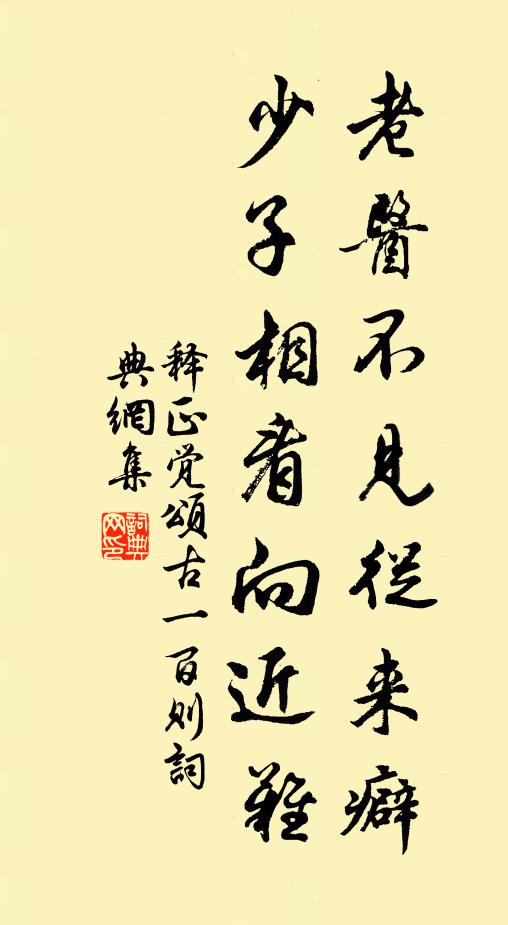 老醫不見從来癖
少子相看向近難
释正觉頌古一百则詞
典網集
詞典网印